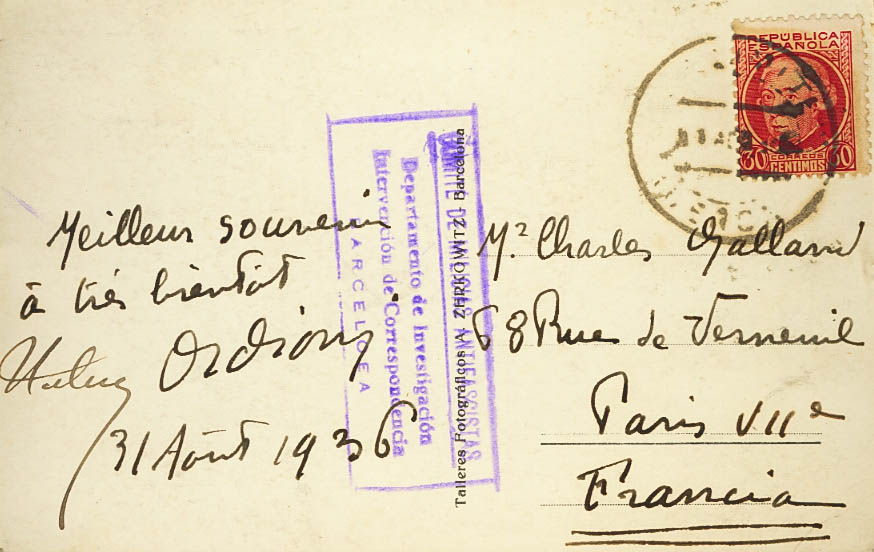 REPÚBLICA
ESPAÑOLA
30 CORREOS 30
CENTIMOS
Meilleur souvenir
à très bientôt
Ordioni
31 Août 1936
COMITÉ DE MILICIAS ANTIFASCISTAS
Departamento de Investigación
Intervención de Correspondencia
BARCELONA
Talleres Fotográficos A. ZERKOWITZ - Barcelona
Mr Charles Galland
68 Rue de Verneuil
Paris VIIe
Francia